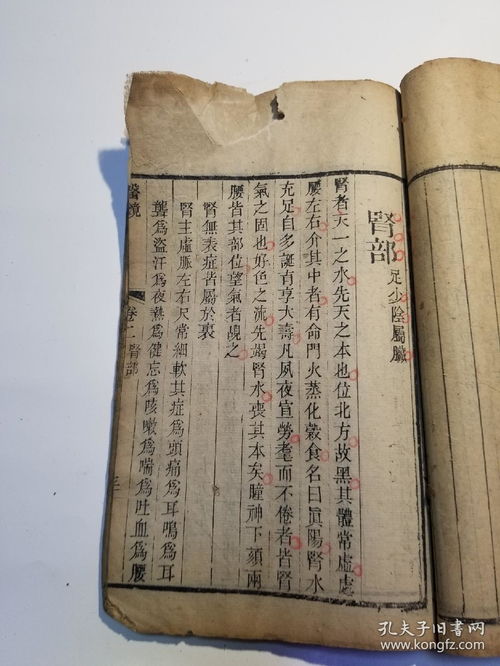 腎部 足少陰屬臟
腎者天一之水先天之本也位北方故黑其體常虛處
腰左右介其中者有命門火蒸化穀食名曰眞陽腎水
充足自多誕育享大壽凡夙夜宣勞耄而不倦者皆腎
氣之固也好色之流先竭腎水喪其本矣瞳神下頦兩
腰皆其部位望氣者覘之
腎無表症皆屬於裏
腎主虛脈左右尺常細軟其症爲頭痛爲耳鳴爲耳
聾爲盜汗爲夜熱爲健忘爲咳嗽爲喘爲吐血爲腰
醫鏡 卷二 腎部
孔夫子旧书网
www.kongfz.com